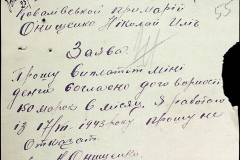 55
Ковалівській примарії
Онищенко Николай Иль
Заява
Прошу виплатит міні
деньги согласно договорності
150 марок в місяц. Я работаю
із 17/III 1943 року прошу не
отказат
Н Онищенко